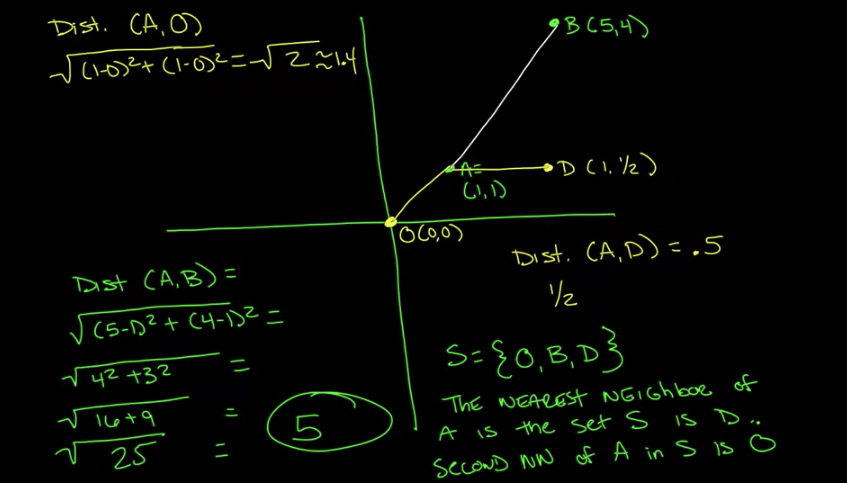 Dist. (A,O)
√(1-0)²+(1-0)² = √2 ≈ 1.4
B (5,4)
A=
(1,1)
D (1, ½)
O(0,0)
Dist. (A,D) = .5
½
Dist (A,B) =
√(5-1)² + (4-1)² =
√4² + 3² =
√16 + 9 =
√25 =
5
S = {O, B, D}
THE NEAREST NEIGHBOR of
A is the set S is D..
SECOND NN of A in S is O